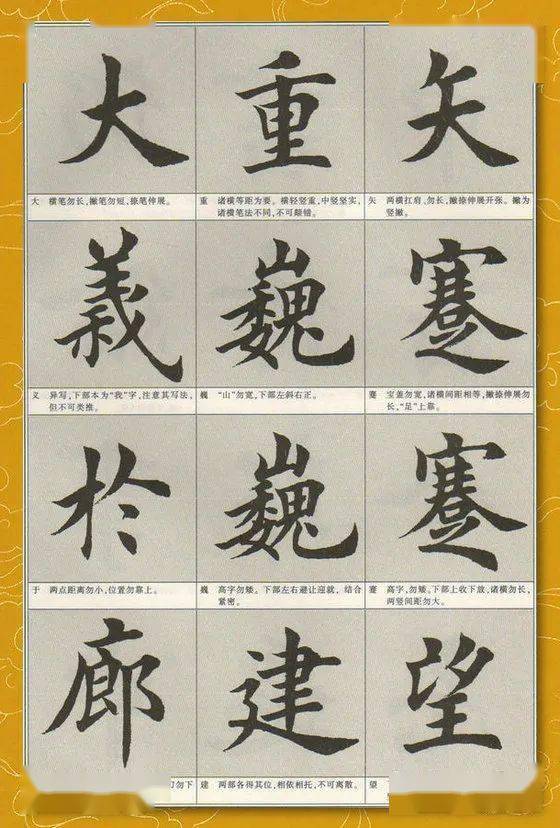 大 重 矢
大 横笔勿长，撇笔勿短，捺笔伸展。
重 诸横等距为要。横轻竖重，中竖坚实，
诸横笔法不同，不可颠错。
矢 两横扛肩、勿长，撇捺伸展开张。撇为
竖撇。
義 巍 蹇
义 异写，下部本为“我”字，注意其写法，
但不可类推。
巍 “山”勿宽，下部左斜右正。
蹇 宝盖勿宽，诸横间距相等，撇捺伸展勿
长，“足”上靠。
於 巍 蹇
于 两点距离勿小，位置勿靠上。
巍 高字勿矮。下部左右避让迎就，结合
紧密。
蹇 高字，勿矮。下部上收下放，诸横勿长，
两竖间距勿大。
廊 建 望
勿下
建 两部各得其位，相依相托，不可离散。
望